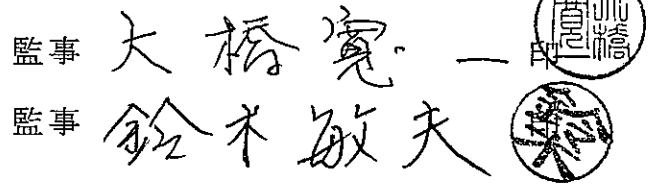 監事 大橋寛一 印
監事 鈴木敏夫